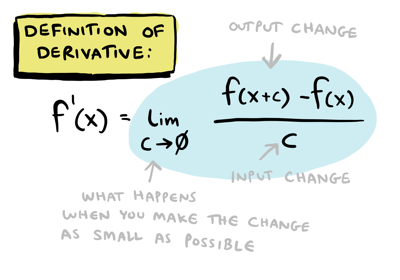 DEFINITION OF
DERIVATIVE:
OUTPUT CHANGE
f'(x) = lim c→∅ f(x+c) - f(x) / c
INPUT CHANGE
WHAT HAPPENS
WHEN YOU MAKE THE CHANGE
AS SMALL AS POSSIBLE